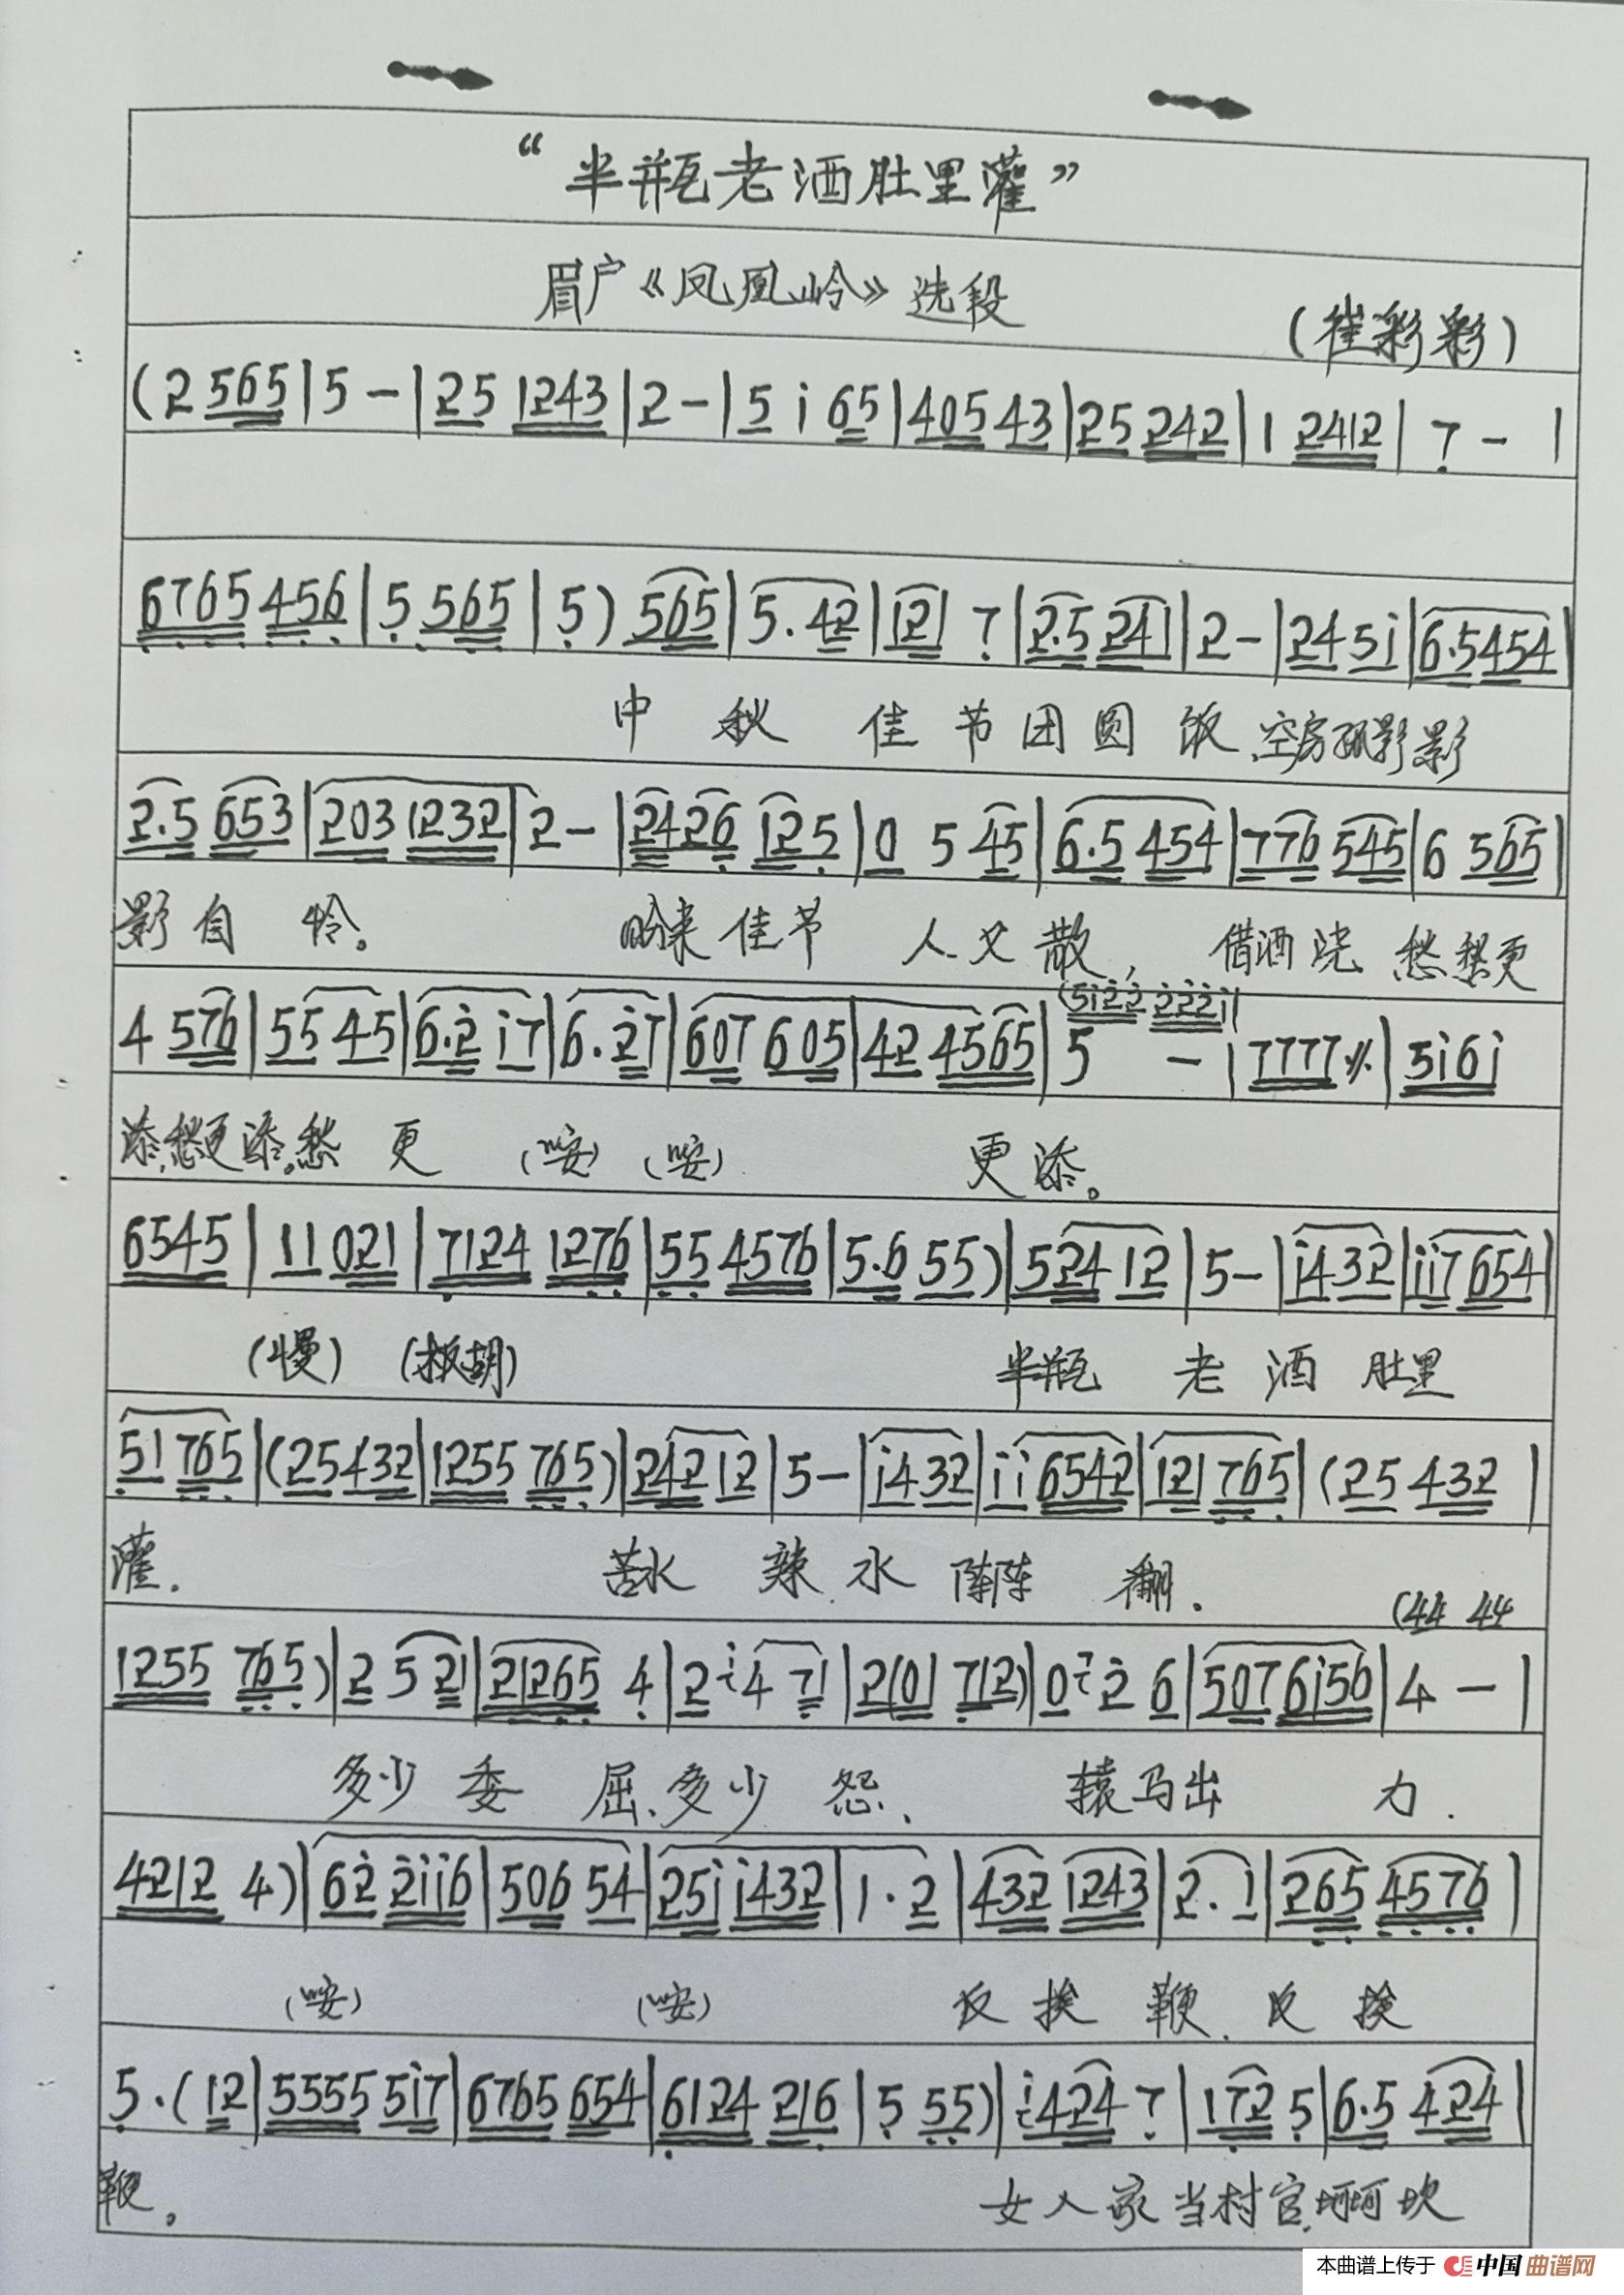 “半瓶老酒肚里灌”
眉户《凤凰岭》选段
(崔彩彩)
(2 565|5 -|25 1243|2 -|5 i 65|405 43|25 242|1 2412|7 - |
6765 456|5 565|5) 565|5.42|121 7|2.5 241|2 -|24 5i|6.5454|
中 秋 佳 节 团 圆 饭、空房孤影影
2.5 653|203 1232|2 -|2426 125|0 5 45|6.5 454|776 545|6 565|
影自怜。 盼来佳节 人又散, 借酒浇 愁愁更
(5i22 222i|
4 576|55 45|6.2 i7|6.27|607 605|42 4565|5 -|7777 ⁒|5i6i
添,愁更添。愁 更 (唵) (唵) 更添。
6545|11 021|7124 1276|55 4576|5.6 55)|524 12|5 -|i432|ii7 654|
(慢) (板胡) 半瓶 老 酒 肚里
51 765|(25 432|1255 765)|242 12|5 -|i432|ii 6542|121 765|(25 432 |
灌. 苦水 辣水 阵阵 翻.
(44 44
1255 765)|2 5 21|21265 4|2 i4 71|2(01 712)|0 7 2 6|507 6i56|4 - |
多少 委 屈、多少 怨. 辕马出 力.
4212 4)|62 2ii6|506 54|25i i432|1.2|432 1243|2.1|265 4576|
(唵) (唵) 反 挨 鞭. 反 挨
5.(12|5555 5i7|6765 654|6124 216|5 55)|i424 7|172 5|6.5 424|
鞭。 女人家当村官.坷坷坎
本曲谱上传于 中国曲谱网